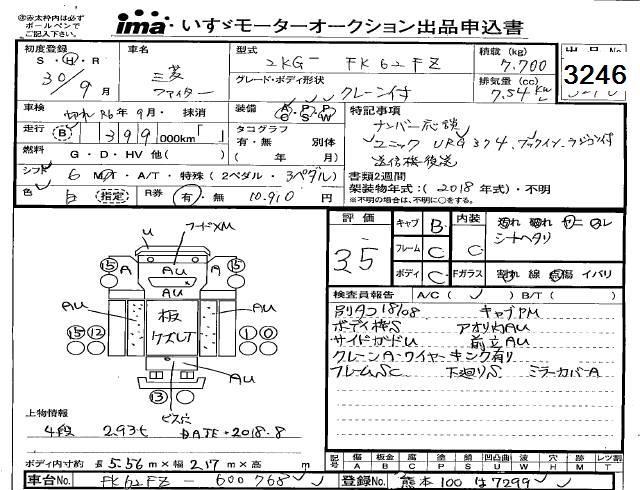 ㊟赤太枠内は必ず
ボールペンで
ご記入下さい。
ima いすゞモーターオークション出品申込書
初度登録
S・H・R
30/9月
車名
三菱
ファイター
型式
2KG- FK62FZ
グレード・ボディ形状
クレーン付
積載 (kg)
7,700
排気量 (cc)
7.54
出品No.
3246
車検
切れ R6年9月・抹消
走行 B 399 000km「 」
燃料 G・D・HV 他( )
シフト 6 M/T・A/T・特殊(2ペダル・3ペダル)
色 白 (指定) R券 有・無 10.910 円
装備 A P A
C S W
タコグラフ
有・無 別体
( 年 月)
特記事項
ナンバー応談
ユニック URG374,フックイン・ラジコン付
送信機後送
書類2週間
架装物年式:(2018年式)・不明
※不明の場合は、不明に○をする。
評価
3.5
キャブ B
フレーム C
ボディ C
内装 C
シートヘタリ
Fガラス 割れ 線 点傷 イバリ
検査員報告 A/C( ✓ ) B/T( )
別タコ18/08 キャブPM
ボディ横S アオリ内AU
サイドガードU 前立AU
クレーンA・ワイヤーキンク有り
フレームSC 下廻りS ミラーカバーA
フードXM
U
15 A AU A 15
AU
AU 板 AU
ケズレT
15 12 1 0
AU
AU
13
ビス穴
上物情報
4段 2.93t DATE・2018.8
ボディ内寸約 長5.56m×幅2.17m×高 m
記号 傷 板金 腐 塗 錆 凹 凸凹曲 波 穴 跡 レツ割
A B C P S U W H M T
車台No. FK62FZ-600768
登録No. 熊本100は7299